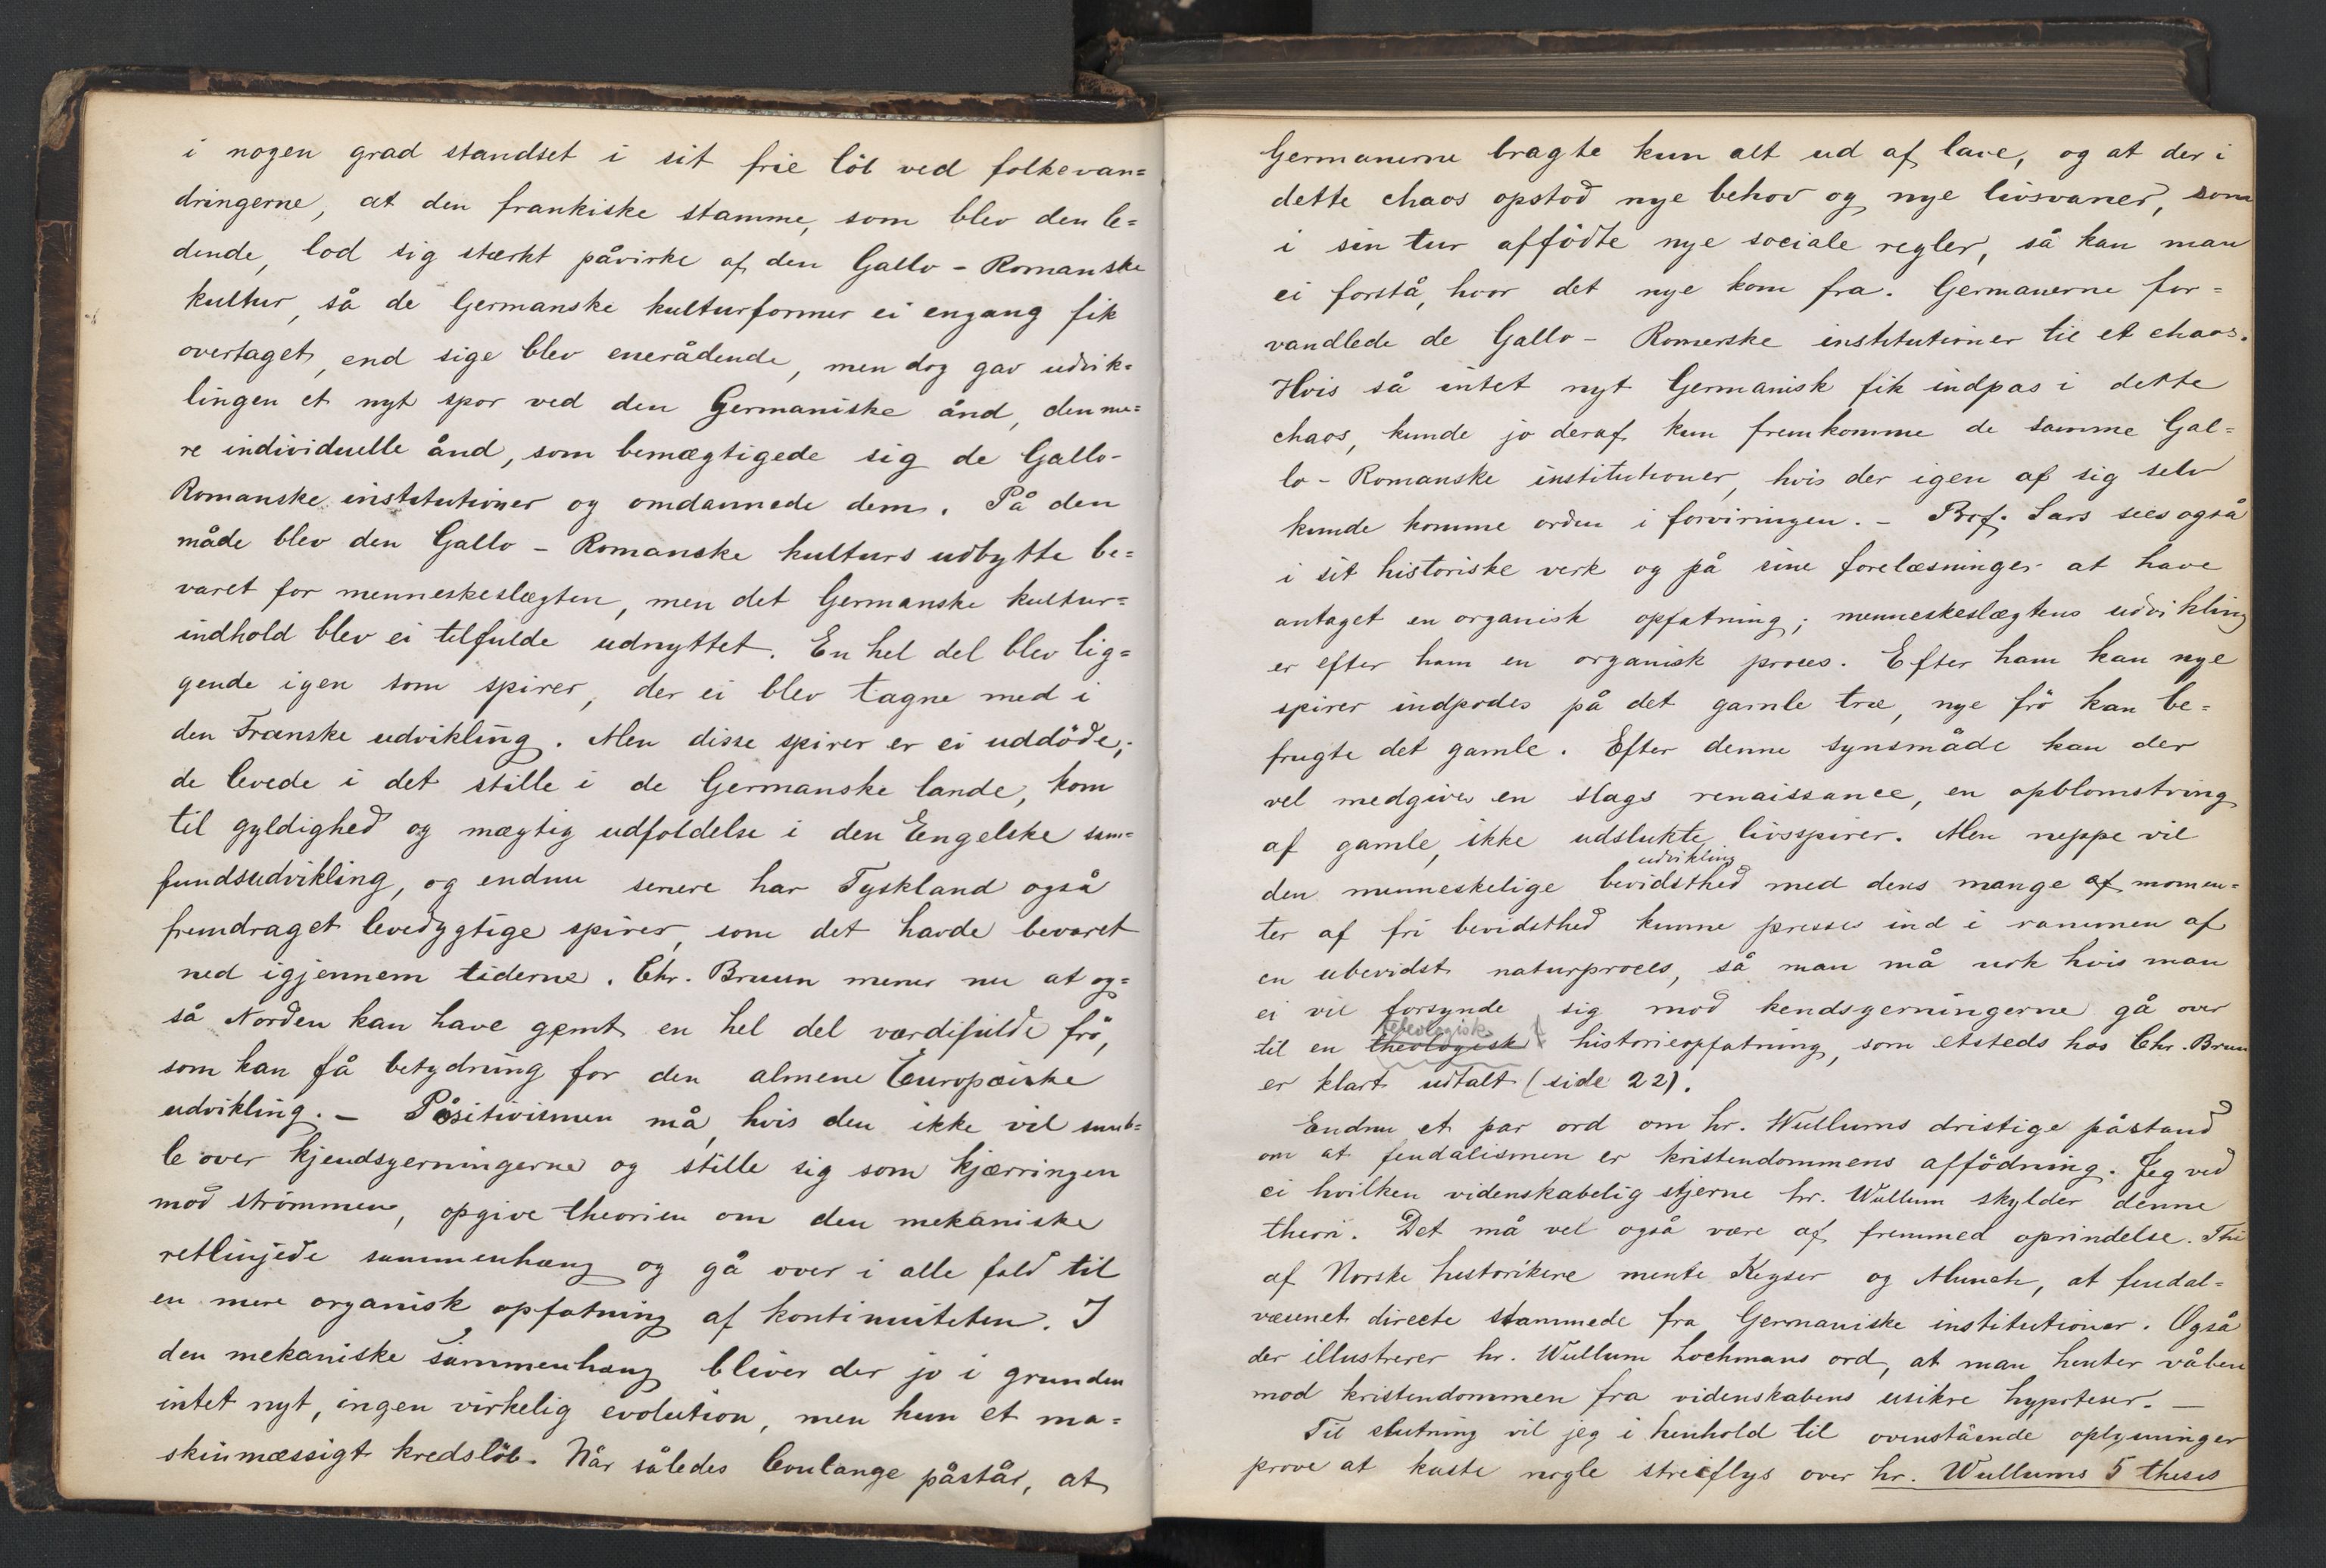 i nogen grad standset i sit frie löb ved folkevan=
dringerne, at den frankiske stamme, som blev den le=
dende, lod sig stærkt påvirke af den Gallo-Romanske
kultur, så de Germanske kulturformer ei engang fik
overtaget, end sige blev enerådende, men dog gav udvik=
lingen et nyt spor ved den Germaniske ånd, den me=
re individuelle ånd, som bemægtigede sig de Gallo-
Romanske institutioner og omdannede dem. På den
måde blev den Gallo-Romanske kulturs udbytte be=
varet for menneskeslægten, men det Germanske kultur=
indhold blev ei tilfulde udnyttet. En hel del blev lig=
gende igen som spirer, der ei blev tagne med i
den Franske udvikling. Men disse spirer er ei uddöde;
de levede i det stille i de Germanske lande, kom
til gyldighed og mægtig udfoldelse i den Engelske sam=
fundsudvikling, og endnu senere har Tyskland også
fremdraget levedygtige spirer, som det havde bevaret
ned igjennem tiderne. Chr. Bruun mener nu at og=
så Norden kan have gemt en hel del værdifulde frö,
som kan få betydning for den almene Europæiske
udvikling. – Positivismen må, hvis den ikke vil snub=
le over kjendsgerningerne og stille sig som kjærringen
mod strömmen, opgive theorien om den mekaniske
retlinjede sammenhæng og gå over i alle fald til
en mere organisk opfatning af kontinuiteten. I
den mekaniske sammenhæng bliver der jo i grunden
intet nyt, ingen virkelig evolution, men kun et ma=
skinmæssigt kredslöb. Når således Coulange påstår, at
Germanerne bragte kun alt ud af lave, og at der i
dette chaos opstod nye behov og nye livsvaner, som
i sin tur affödte nye sociale regler, så kan man
ei forstå, hvor det nye kom fra. Germanerne for=
vandlede de Gallo-Romerske institutioner til et chaos.
Hvis så intet nyt Germanisk fik indpas i dette
chaos, kunde jo deraf kun fremkomme de samme Gal=
lo-Romanske institutioner, hvis der igen af sig selv
kunde komme orden i forviringen. – Prof. Sars sees også
i sit historiske verk og på sine forelæsninger at have
antaget en organisk opfatning; menneskeslægtens udvikling
er efter ham en organisk proces. Efter ham kan nye
spirer indpodes på det gamle træ, nye frö kan be=
frugte det gamle. Efter denne synsmåde kan der
vel medgives en slags renaissance, en opblomstring
af gamle, ikke udslukte livsspirer. Men neppe vil
udvikling
den menneskelige bevidsthed med dens mange af momen=
ter af fri bevidsthed kunne presses ind i rammen af
en ubevidst naturproces, så man må nok hvis man
ei vil forsynde sig mod kendsgerningerne gå over
teleologisk
til en theologisk historieopfatning, som etsteds hos Chr. Bruun
er klart udtalt (side 22).
Endnu et par ord om hr. Wullums dristige påstand
om at feudalismen er kristendommens affödning. Jeg ved
ei hvilken videnskabelig stjerne hr. Wullum skylder denne
theori. Det må vel også være af fremmed oprindelse. Thi
af Norske historikere mente Keyser og Munch, at feudal=
væsenet directe stammede fra Germaniske institutioner. Også
der illustrerer hr. Wullum Lochmans ord, at man henter våben
mod kristendommen fra videnskabens usikre hypoteser. –
Til slutning vil jeg i henhold til ovenstående oplysninger
pröve at kaste nogle streiflys over hr. Wullums 5 theses